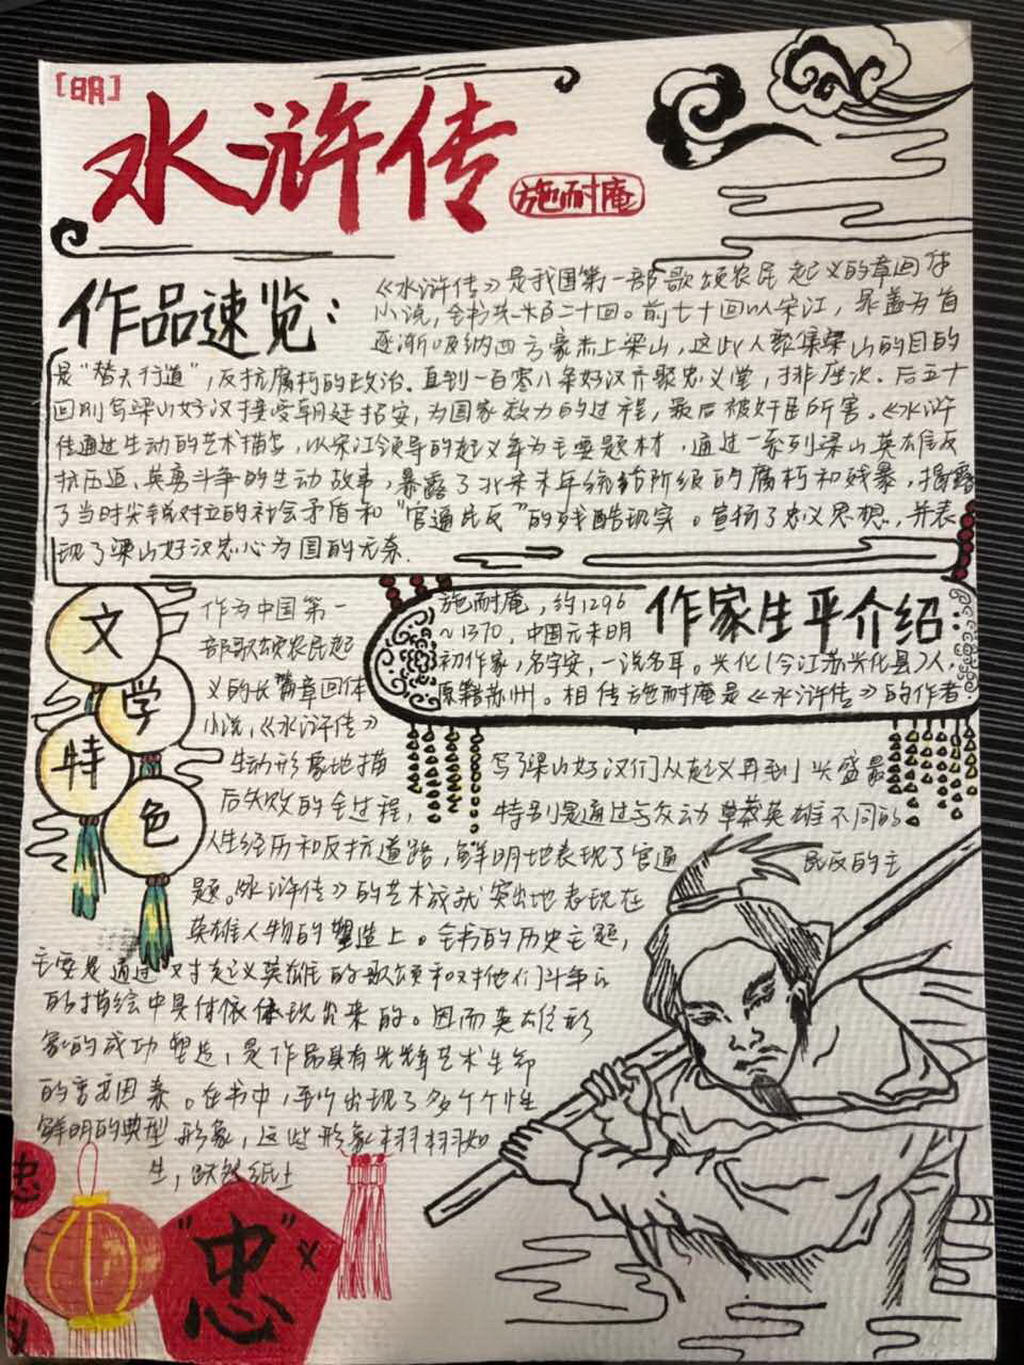 [明]
水浒传
施耐庵
作品速览：
《水浒传》是我国第一部歌颂农民起义的章回体
小说，全书共一百二十回。前七十回以宋江，晁盖为首
逐渐吸纳四方豪杰上梁山，这些人聚集梁山的目的
是“替天行道”，反抗腐朽的政治。直到一百零八条好汉齐聚忠义堂，排座次。后五十
回则写梁山好汉接受朝廷招安，为国家效力的过程，最后被奸臣所害。《水浒
传通过生动的艺术描写，以宋江领导的起义军为主要题材，通过一系列梁山英雄反
抗压迫、英勇斗争的生动故事，暴露了北宋末年统治阶级的腐朽和残暴，揭露
了当时尖锐对立的社会矛盾和“官逼民反”的残酷现实。宣扬了忠义思想，并表
现了梁山好汉忠心为国的无奈.
作家生平介绍：
施耐庵，约1296
~1370，中国元末明
初作家，名字安，一说名耳。兴化(今江苏兴化县)人，
原籍苏州。相传施耐庵是《水浒传》的作者
文学特色
作为中国第一
部歌颂农民起
义的长篇章回体
小说，《水浒传》
生动形象地描写了梁山好汉们从起义再到兴盛最
后失败的全过程，特别是通过与众动草莽英雄不同的
人生经历和反抗道路，鲜明地表现了官逼民反的主
题。《水浒传》的艺术成就突出地表现在
英雄人物的塑造上。全书的历史主题，
主要是通过对起义英雄的歌颂和对他们斗争
的描绘中具体体现出来的。因而英雄形
象的成功塑造，是作品具有光辉艺术生命
的重要因素。在书中，出现了多个个性
鲜明的典型形象，这些形象栩栩如
生，跃然纸上
忠
“忠”义
义